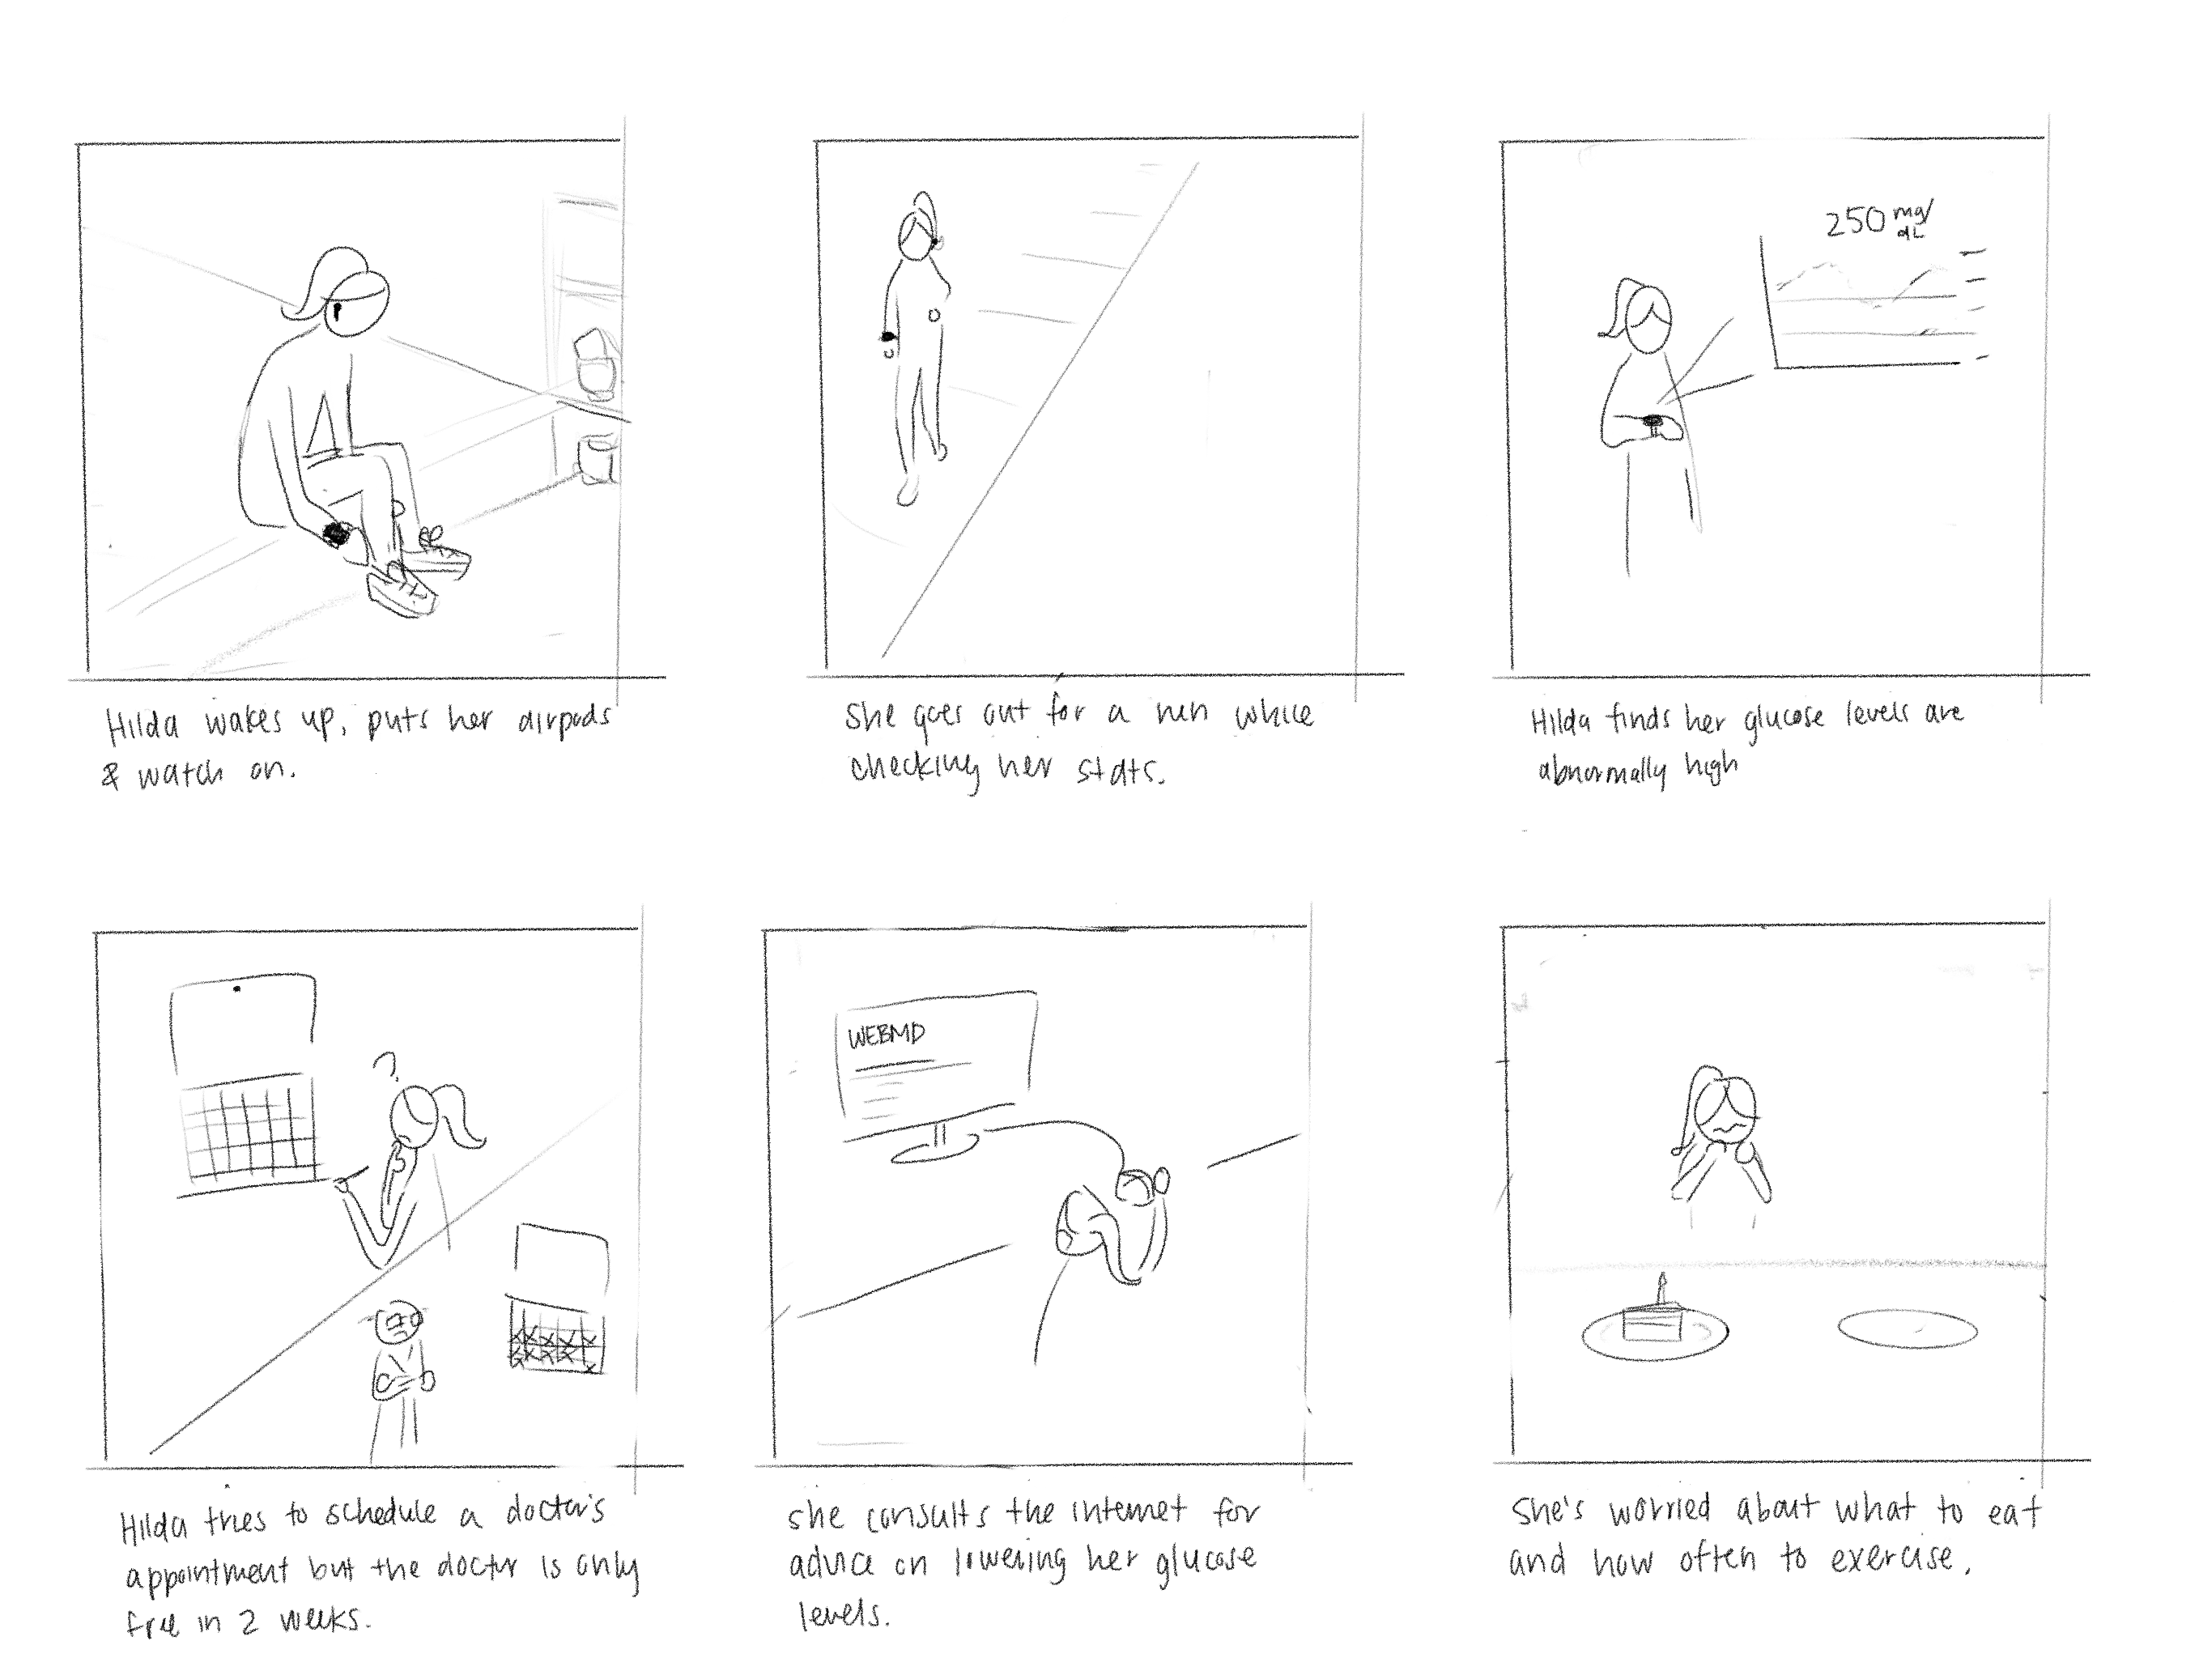 Hilda wakes up, puts her airpods
& watch on.
She goes out for a run while
checking her stats.
250 mg/
dL
Hilda finds her glucose levels are
abnormally high
?
Hilda tries to schedule a doctor's
appointment but the doctor is only
free in 2 weeks.
WEBMD
she consults the internet for
advice on lowering her glucose
levels.
She's worried about what to eat
and how often to exercise.